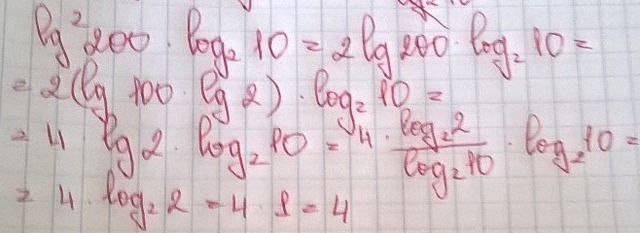 lg²200 · log₂ 10 = 2 lg 200 · log₂ 10 =
= 2(lg 100 · lg 2) · log₂ 10 =
= 4 lg 2 · log₂ 10 = 4 · log₂2 / log₂10 · log₂10 =
= 4 · log₂ 2 = 4 · 1 = 4